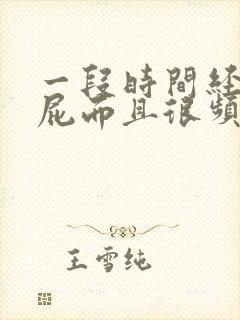 一段時間経
屁而且很頻
王雪纯